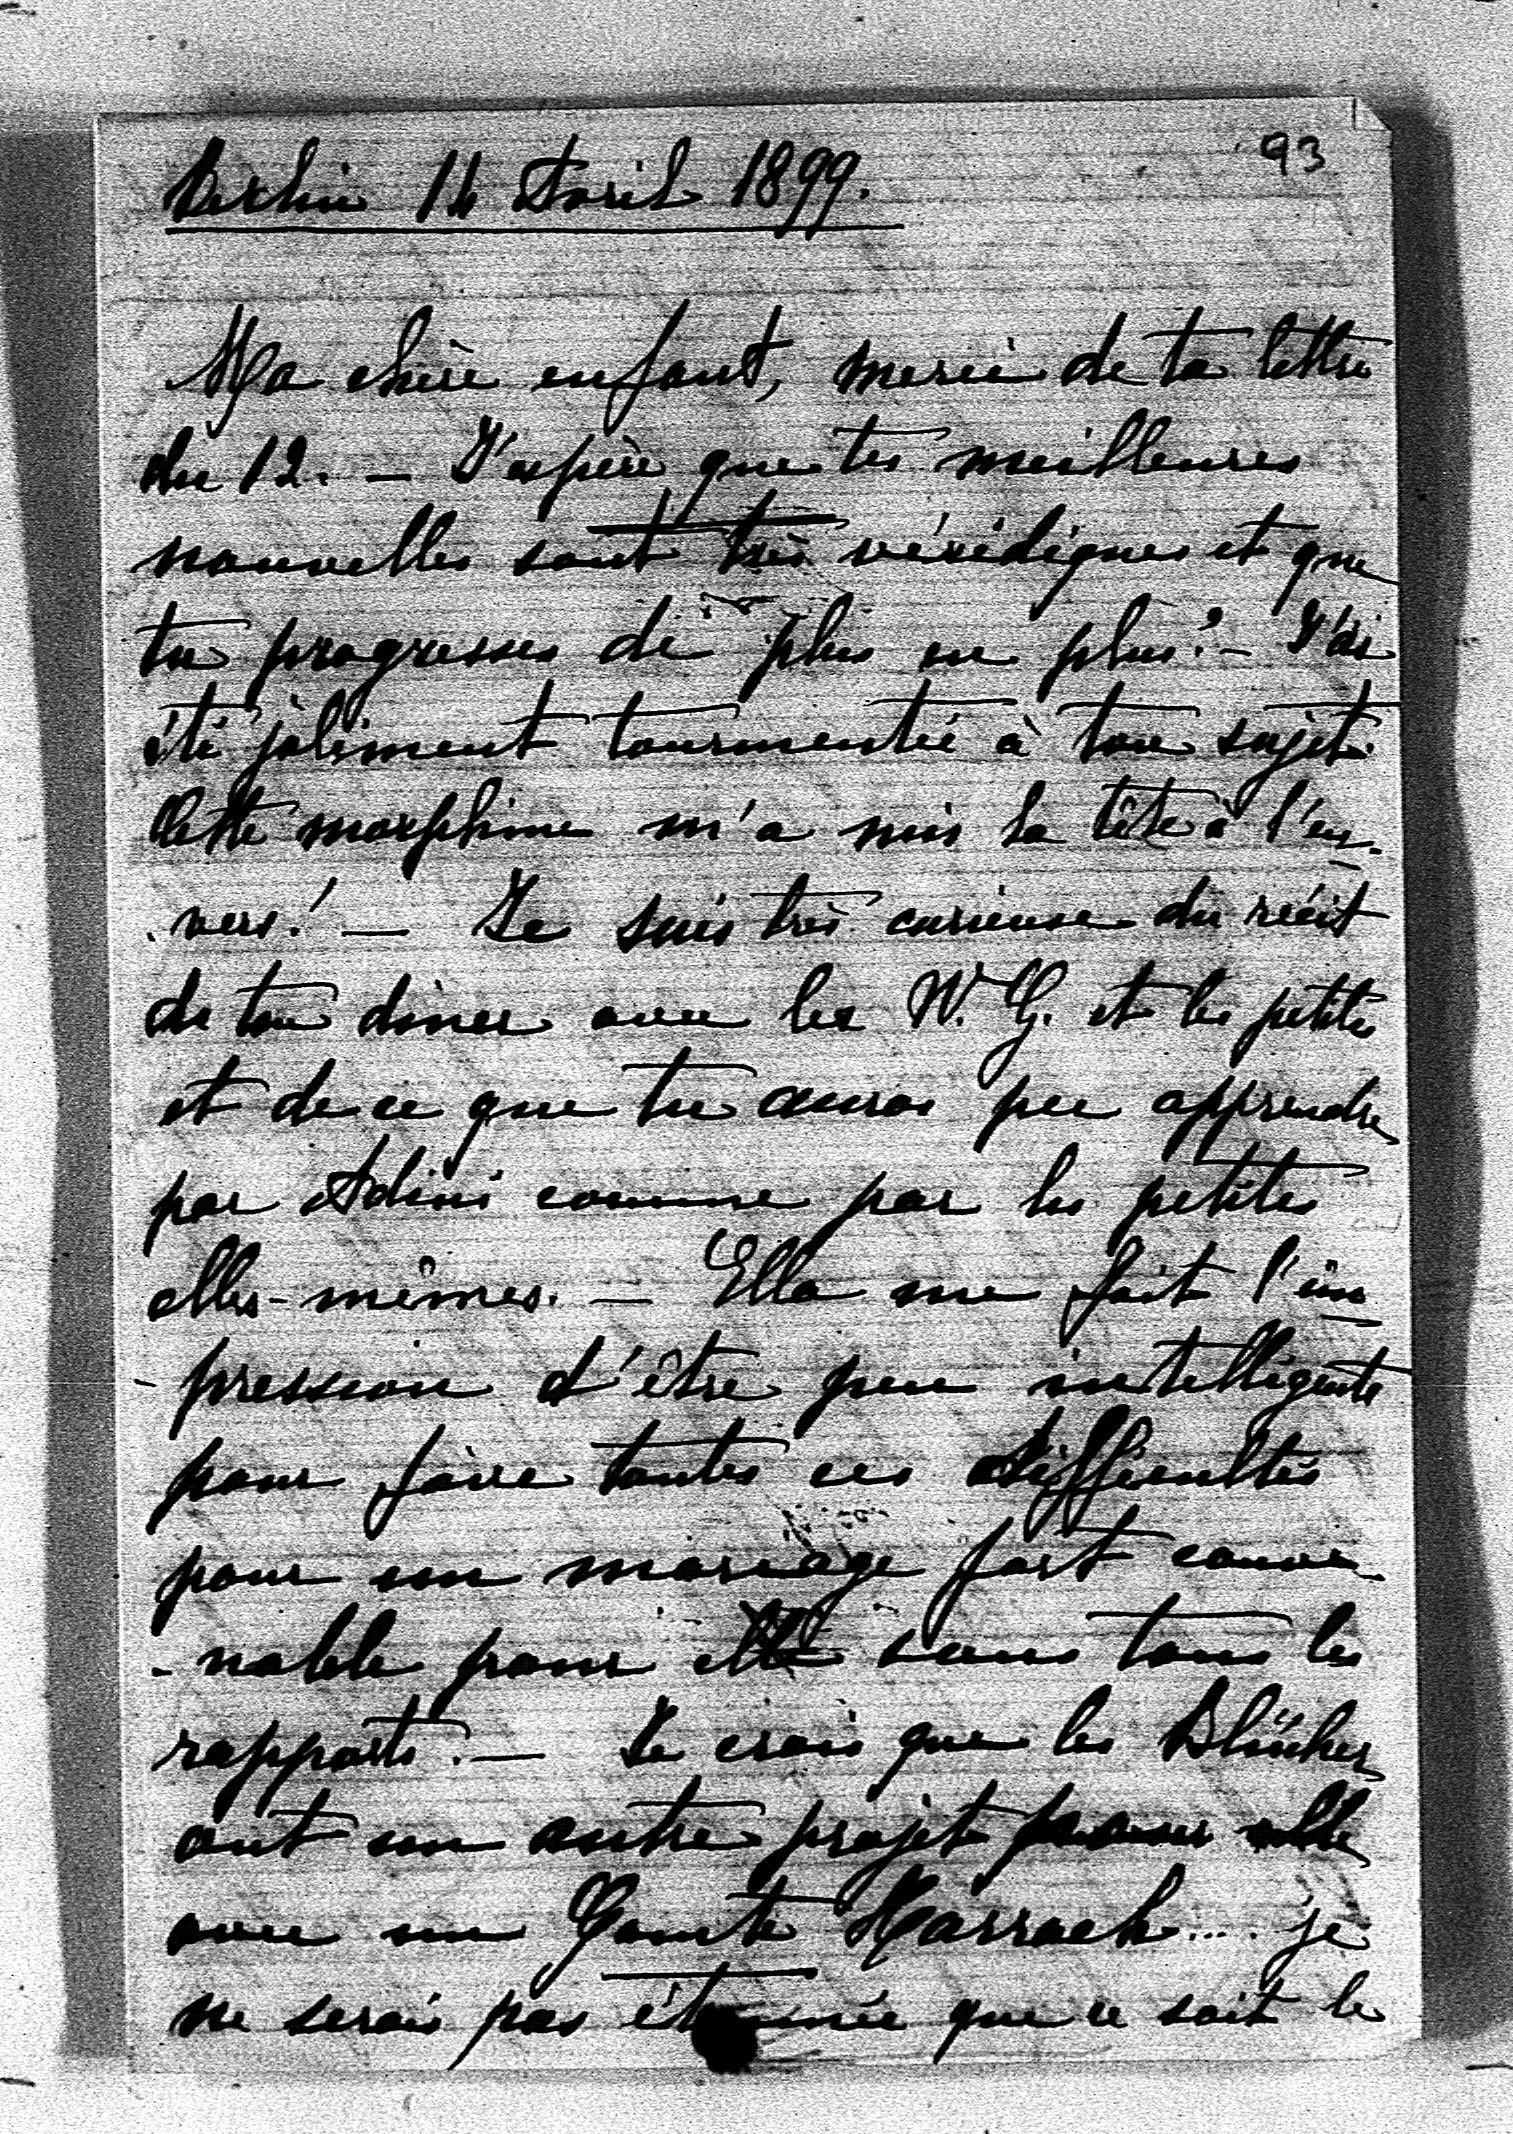 93
Berlin 14 Avril 1899.
Ma chère enfant, merci de ta lettre
du 12. — J'espère que tes meilleures
nouvelles sont très véridiques et que
tu progresses de plus en plus? — J'ai
été joliment tourmentée à ton sujet.
Cette morphine m'a mis la tête à l'en-
-vers! — Je suis très curieuse du récit
de ton diner avec les W. G. et les petites
et de ce que tu auras pu apprendre
par Adini comme par les petites
elles-mêmes. — Ella me fait l'im
-pression d'être peu intelligente
pour faire toutes ces difficultés
pour un mariage fort conve-
-nable pour elle sous tous les
rapports. — Je crois que les Blücher
ont un autre projet pour elle
avec un Comte Harrach.... je
ne serais pas étonnée que ce soit le